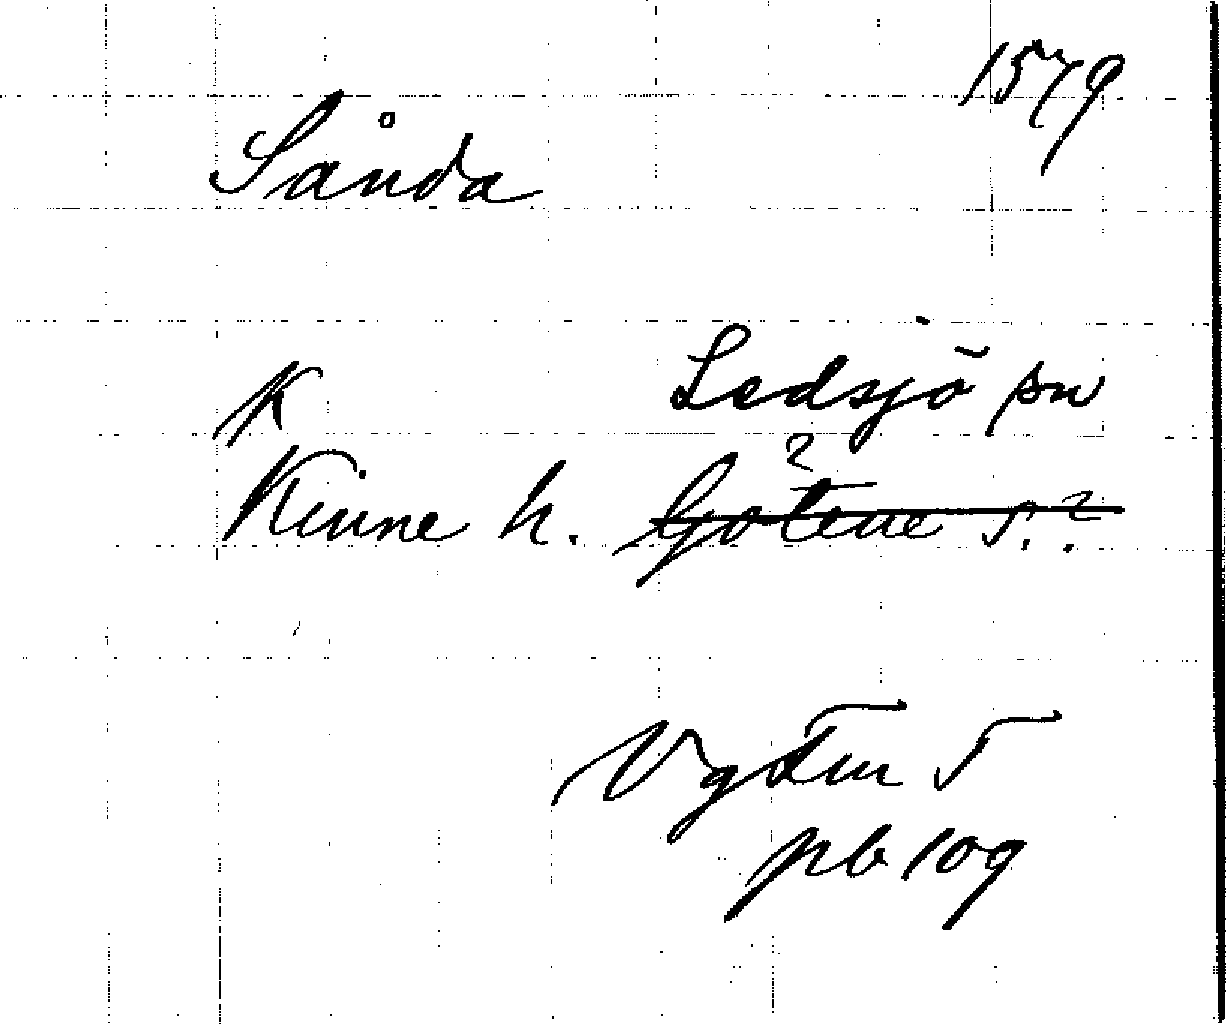 1579
Sånda
K Ledsjö sn
?
Kinne h. Götene s. ?
Vg Tu 5
pb 109